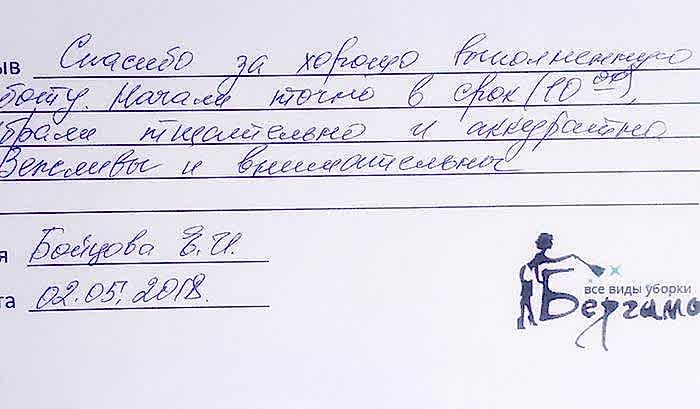 ыв Спасибо за хорошо выполненную
боту. Начали точно в срок (10 00),
брали тщательно и аккуратно
Вежливы и внимательны
я Бойцова Е.И.
та 02.05.2018.
все виды уборки
Бергамо